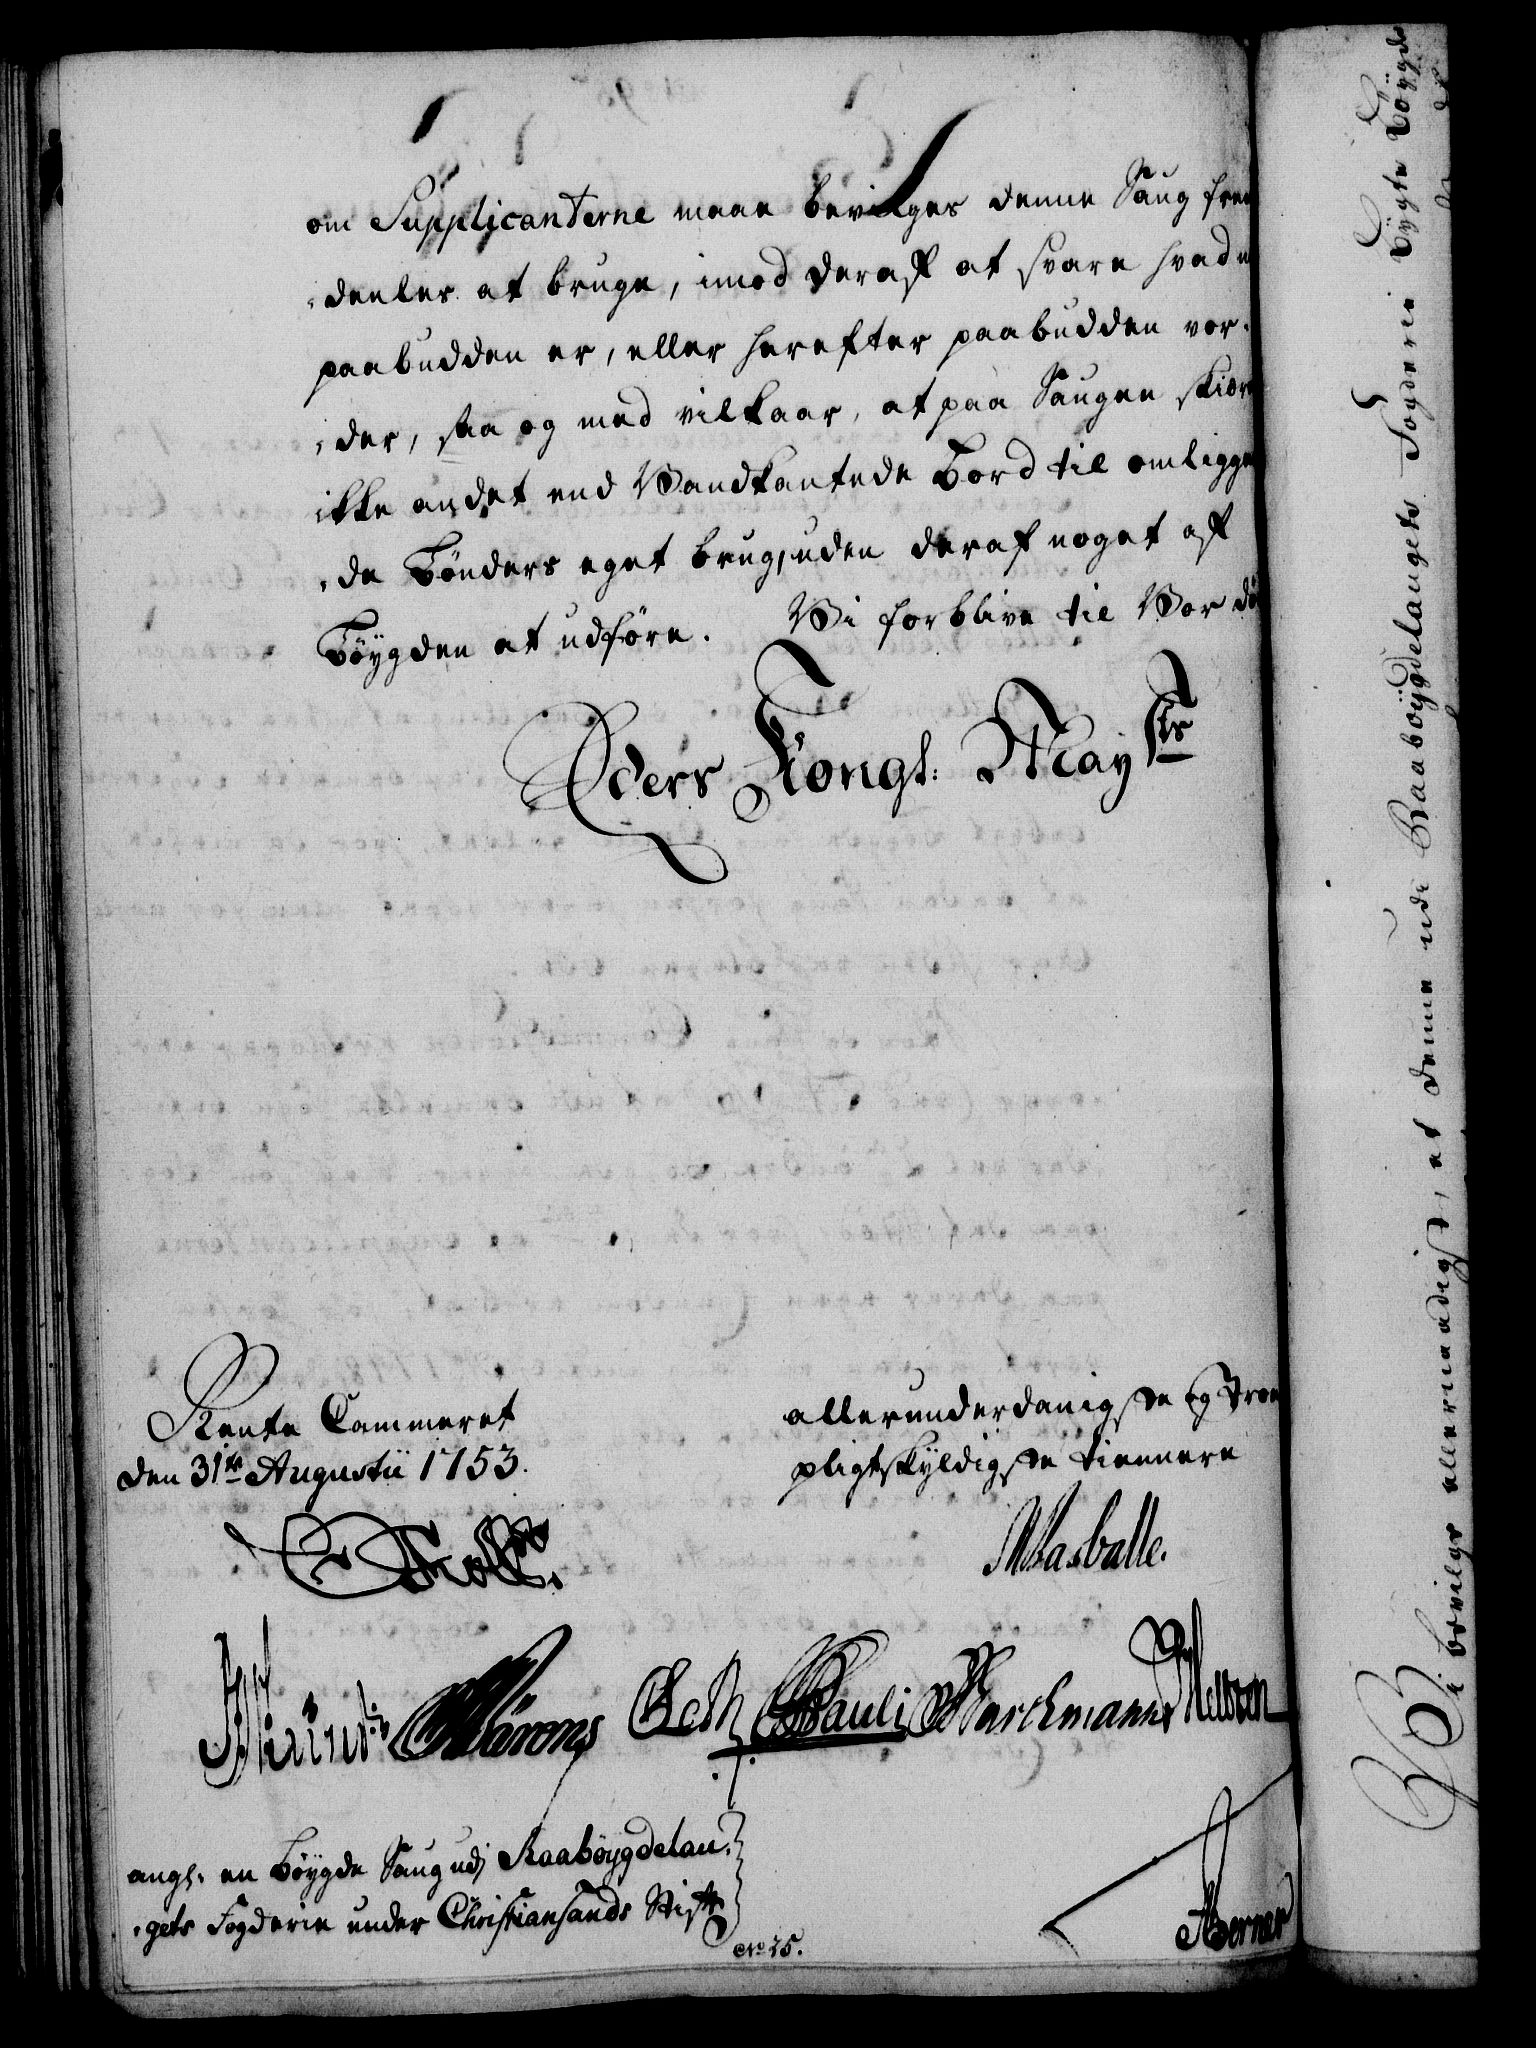 om Supplicanterne maae bevilges denne Saug frem
-deeles at bruge, imod deraf at svare hvad nu
paabudden er, eller herefter paabudden vor-
-der, saa og med vilkaar, at paa Saugen skiæres
ikke andet end Vandkantede Bord til omliggen
-de Bönders eget brug, uden deraf noget af
Böÿgden at udföre. Vi forblive til Vor död
Eders Kongl: Mayts
Rente Cammeret
den 31te Augustii 1753.
allerunderdanigste og troe
pligtskyldigste tiennere
Holst.
Masballe.
Pauli Barchmann
angl: en Böÿgde Saug udj Raaböÿgdelau-
-gets Fogderie under Christiansands Stift
No 25.
Berner
Vi bevilge allernaadigst, at denne udi Raaboÿgdelaugets Fogderie Bÿgte Böÿgde